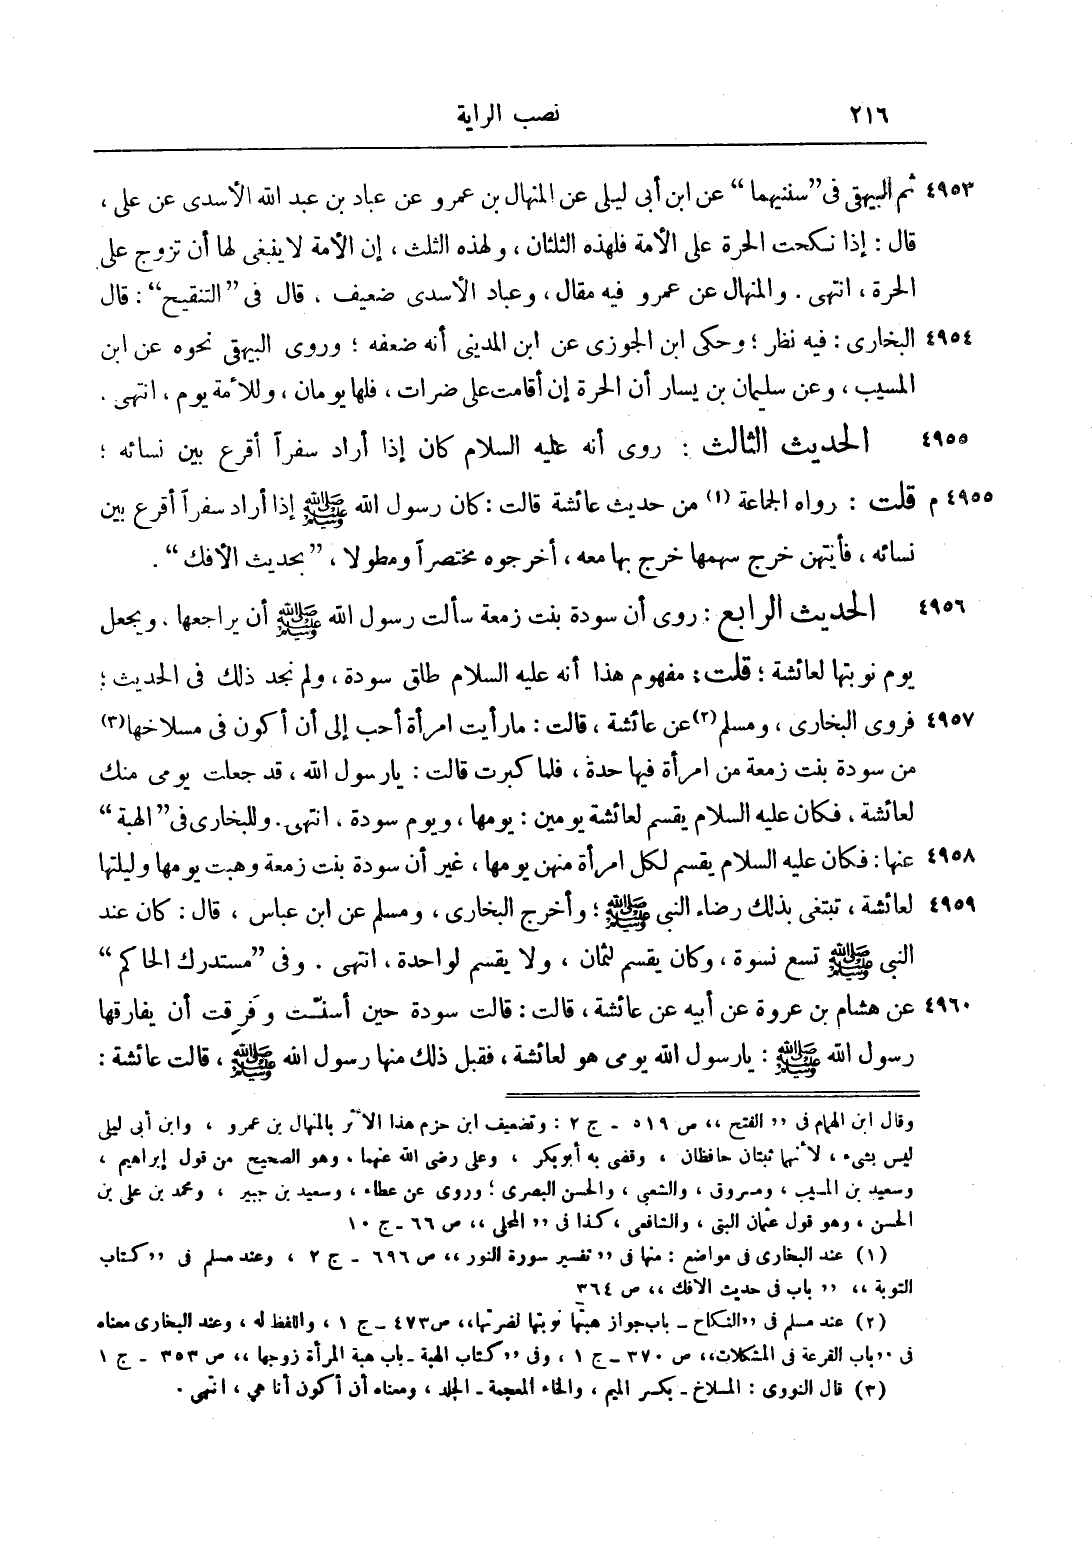 ٢١٦ نصب الراية
٤٩٥٣ ثم البيهقى فى "سننيهما" عن ابن أبى ليلى عن المنهال بن عمرو عن عباد بن عبد الله الأسدى عن على ،
قال : إذا نكحت الحرة على الأمة فلهذه الثلثان ، ولهذه الثلث ، إن الأمة لا ينبغى لها أن تزوج على
الحرة ، انتهى . والمنهال عن عمرو فيه مقال ، وعباد الأسدى ضعيف . قال فى "التنقيح" : قال
٤٩٥٤ البخارى : فيه نظر ؛ وحكى ابن الجوزى عن ابن المدينى أنه ضعفه ؛ وروى البيهقى نحوه عن ابن
المسيب ، وعن سليمان بن يسار أن الحرة إن أقامت على ضرات ، فلها يومان ، وللأمة يوم ، انتهى .
٤٩٥٥ الحديث الثالث : روى أنه عليه السلام كان إذا أراد سفراً أقرع بين نسائه ؛
٤٩٥٥ م قلت : رواه الجماعة (١) من حديث عائشة قالت : كان رسول الله ﷺ إذا أراد سفراً أقرع بين
نسائه ، فأيتهن خرج سهمها خرج بها معه ، أخرجوه مختصراً ومطولا ، "بحديث الأفك" .
٤٩٥٦ الحديث الرابع : روى أن سودة بنت زمعة سألت رسول الله ﷺ أن يراجعها . ويجعل
يوم نوبتها لعائشة ؛ قلت : مفهوم هذا أنه عليه السلام طلق سودة ، ولم نجد ذلك فى الحديث ؛
٤٩٥٧ فروى البخارى ، ومسلم (٢) عن عائشة ، قالت : مارأيت امرأة أحب إلى أن أكون فى مسلاخها (٣)
من سودة بنت زمعة من امرأة فيها حدة ، فلما كبرت قالت : يارسول الله ، قد جعلت يومى منك
لعائشة ، فكان عليه السلام يقسم لعائشة يومين : يومها ، ويوم سودة ، انتهى . وللبخارى فى "الهبة"
٤٩٥٨ عنها : فكان عليه السلام يقسم لكل امرأة منهن يومها ، غير أن سودة بنت زمعة وهبت يومها وليلتها
٤٩٥٩ لعائشة ، تبتغى بذلك رضاء النبى ﷺ ؛ وأخرج البخارى ، ومسلم عن ابن عباس ، قال : كان عند
النبى ﷺ تسع نسوة ، وكان يقسم لثمان ، ولا يقسم لواحدة ، انتهى . وفى "مستدرك الحاكم"
٤٩٦٠ عن هشام بن عروة عن أبيه عن عائشة ، قالت : قالت سودة حين أسنّت وفَرِقت أن يفارقها
رسول الله ﷺ : يارسول الله يومى هو لعائشة ، فقبل ذلك منها رسول الله ﷺ ، قالت عائشة :
وقال ابن الهمام فى ,, الفتح ،، ص ٥١٩ - ج ٢ : وتضعيف ابن حزم هذا الأثر بالمنهال بن عمرو ، وابن أبى ليلى
ليس بشىء ، لأنهما ثبتان حافظان ، وقضى به أبوبكر ، وعلى رضى الله عنهما . وهو الصحيح من قول إبراهيم ،
وسعيد بن المسيب ، ومسروق ، والشعبى ، والحسن البصرى ؛ وروى عن عطاء ، وسعيد بن جبير ، ومحمد بن على بن
الحسن ، وهو قول عثمان البتى ، والشافعى ، كذا فى ,, المحلى ،، ص ٦٦ - ج ١٠
(١) عند البخارى فى مواضع : منها فى ,, تفسير سورة النور ،، ص ٦٩٦ - ج ٢ ، وعند مسلم فى ,, كتاب
التوبة ،، ,, باب فى حديث الافك ،، ص ٣٦٤
(٢) عند مسلم فى ,, النكاح - باب جواز هبتها نوبتها لضرتها،، ص ٤٧٣ - ج ١ ، واللفظ له ، وعند البخارى معناه
فى ,, باب القرعة فى المشكلات،، ص ٣٧٠ - ج ١ ، وفى ,, كتاب الهبة - باب هبة المرأة زوجها ،، ص ٣٥٣ - ج ١
(٣) قال النووى : المسلاخ - بكسر الميم ، والخاء المعجمة - الجلد ، ومعناه أن أكون أنا هي ، انتهى .